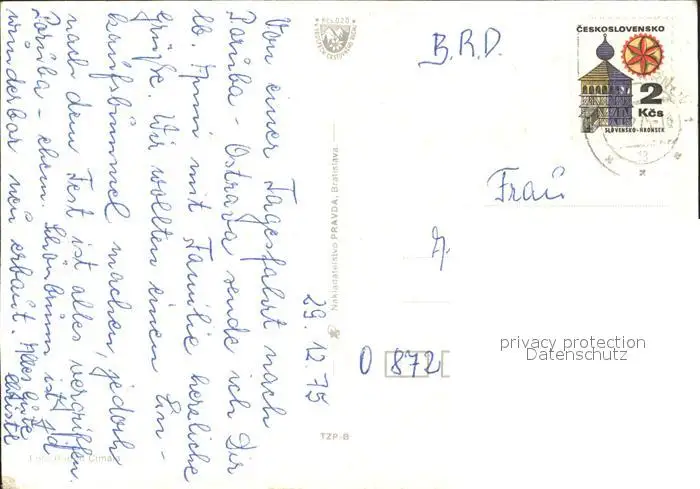 Von einer Tagesfahrt nach
Poruba - Ostrava sende ich Dir
lb. Anni mit Familie herzliche
Grüße. Wir wollten einen Ein-
kaufsbummel machen, jedoch
nach dem Fest ist alles vergriffen.
Poruba - ehem. Schönbrunn ist
wunderbar neu erbaut. Alles Gute
29.12.75
Nakladatelstvo PRAVDA, Bratislava
TZP-B
B.R.D.
ČESKOSLOVENSKO
2
Kčs
SLOVENSKO-HRONSEK
Frau
A.
O 872
privacy protection
Datenschutz